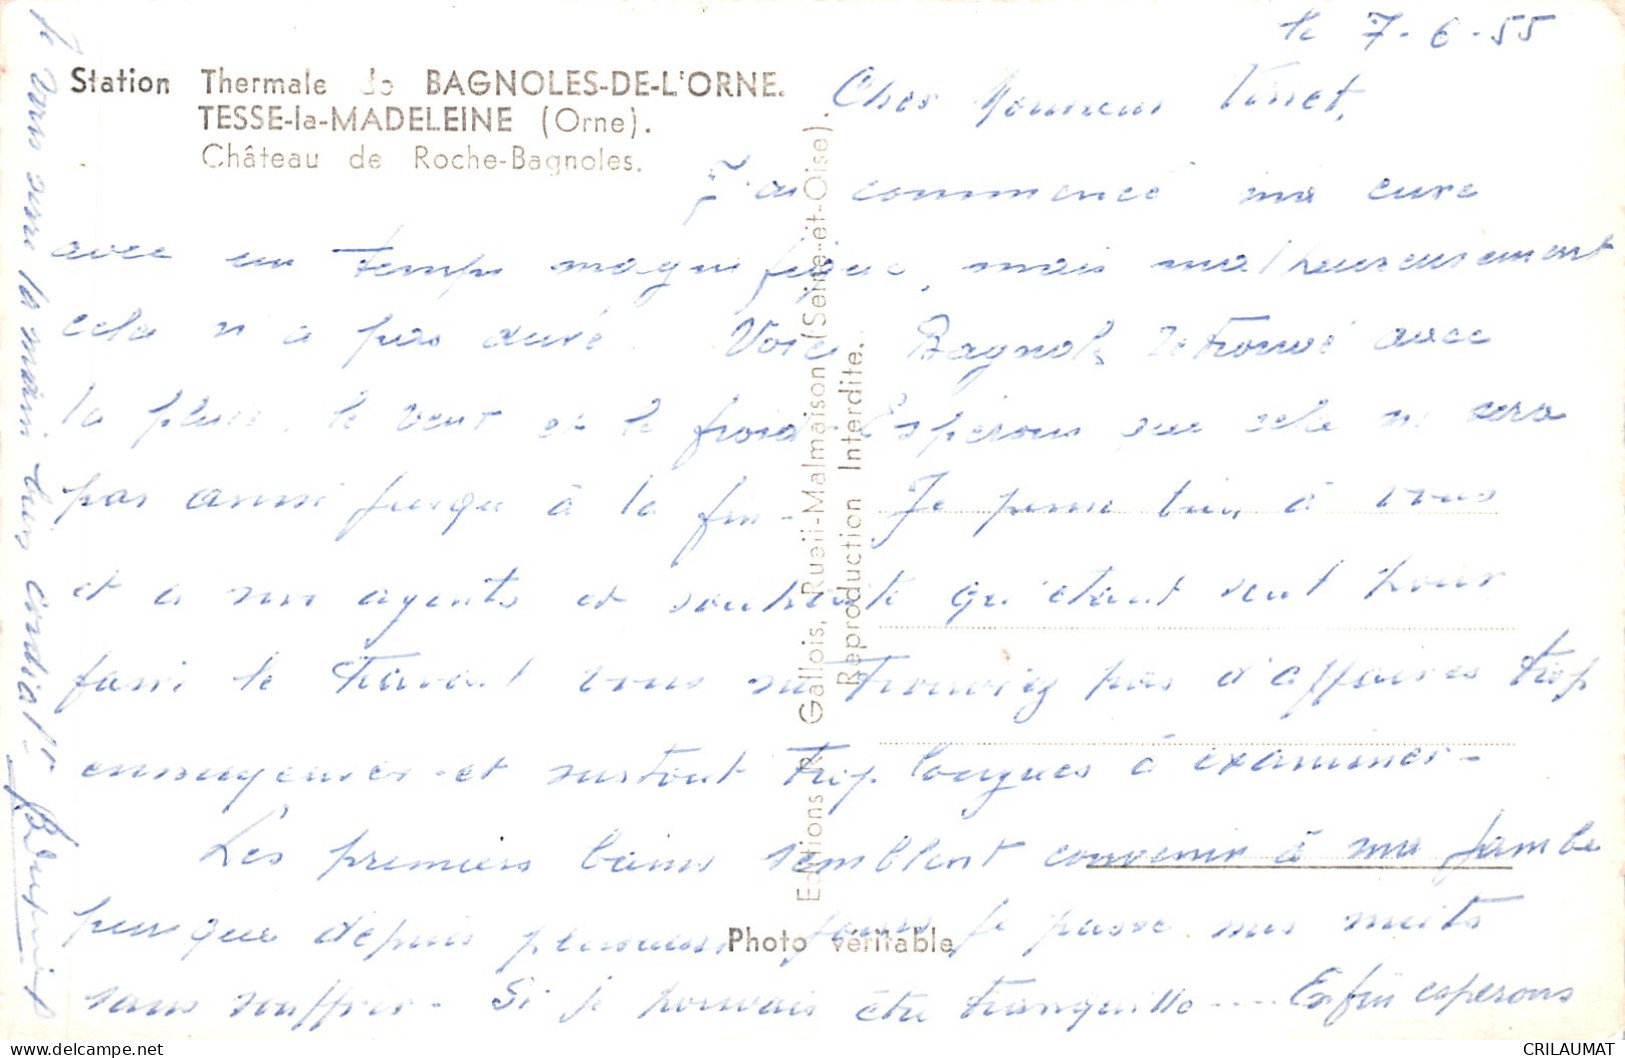 Station Thermale de BAGNOLES-DE-L'ORNE.
TESSE-la-MADELEINE (Orne).
Château de Roche-Bagnoles.
le 7-6-55
Cher Monsieur
J'ai commencé ma cure
avec un temps magnifique, mais malheureusement
cela n'a pas duré. Voici Bagnoles retrouvé avec
la pluie, le vent et le froid - Espérons que cela ne sera
pas ainsi jusqu'à la fin - Je pense bien à vous
et à nos agents et souhaite qu'étant seul pour
faire le travail vous ne trouviez pas d'affaires trop
ennuyeuses - et surtout trop longues à examiner -
Les premiers bains semblent convenir à ma jambe
puisque depuis plusieurs jours je passe mes nuits
sans souffrir - Si je pouvais être tranquille --- Enfin espérons
Je vous serre la main bien cordialt
Editions R. Gallois, Rueil-Malmaison (Seine-et-Oise).
Reproduction Interdite.
Photo véritable
CRILAUMAT